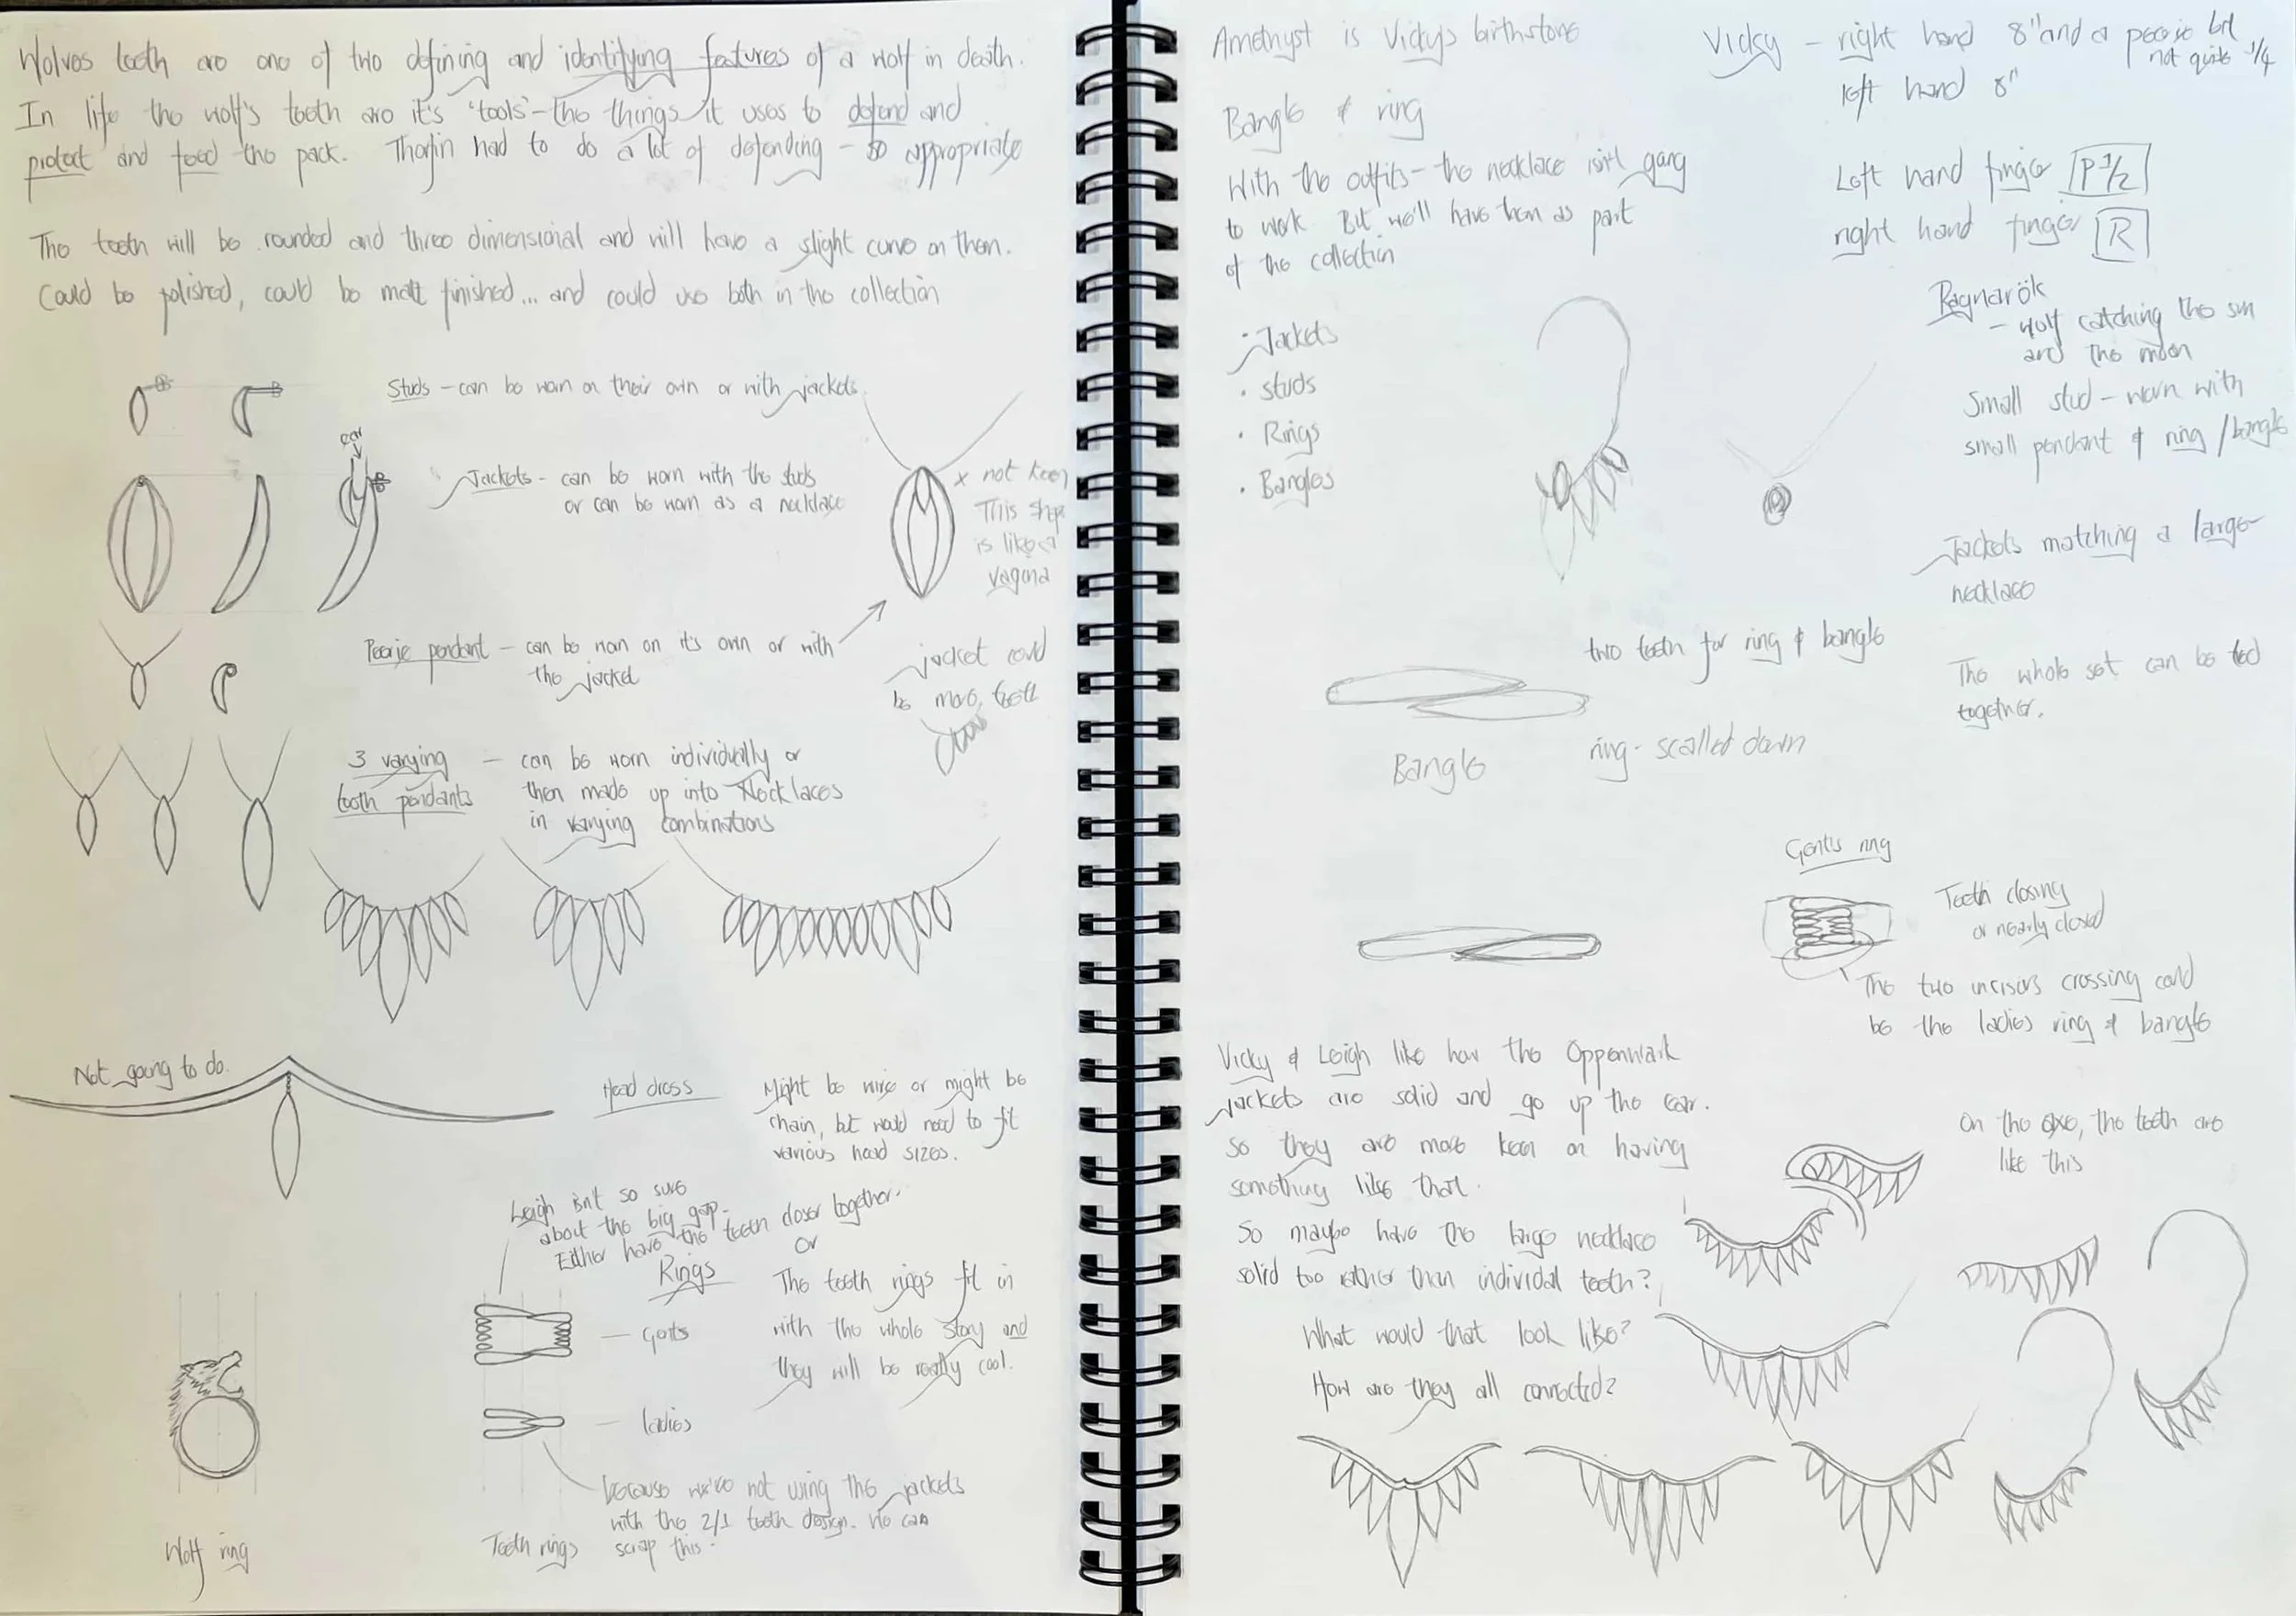 Wolves teeth are one of two defining and identifying features of a wolf in death.
In life the wolf's teeth are it's 'tools' - the things it uses to defend and
protect and feed the pack. Thorfin had to do a lot of defending - so appropriate
The teeth will be rounded and three dimensional and will have a slight curve on them.
Could be polished, could be matt finished... and could use both in the collection
Studs - can be worn on their own or with jackets.
ear
Jackets - can be worn with the studs
or can be worn as a necklace
x not keen
This shape
is like a
vagina
Peerie pendant - can be worn on it's own or with
the jacket
jacket could
be more teeth
3 varying
tooth pendants
- can be worn individually or
then made up into Necklaces
in varying combinations
Not going to do.
Head dress
Might be wire or might be
chain, but would need to fit
various head sizes.
Leigh isn't so sure
about the big gap.
Either have the teeth closer together.
or
Rings
The teeth rings fit in
with the whole story and
they will be really cool.
- Gents
- ladies
because we're not using the jackets
with the 2/1 tooth design. we can
scrap this.
Wolf ring
Teeth rings
Amethyst is Vicky's birthstone
Vicky - right hand 8" and a peerie bit
not quite 1/4
left hand 8"
Bangle & ring
With the outfits - the necklace isn't gang
to work. But we'll have them as part
of the collection
Left hand finger P 1/2
right hand finger R
· Jackets
· studs
· Rings
· Bangles
Ragnarök
- wolf catching the sun
and the moon
Small stud - worn with
small pendant & ring / bangle
Jackets matching a large
necklace
two teeth for ring & bangle
The whole set can be tied
together.
Bangle
ring - scalled down
Gents ring
Teeth closing
or nearly closed
The two incisors crossing could
be the ladies ring & bangle
Vicky & Leigh like how the Oppenwark
jackets are solid and go up the ear.
so they are more keen on having
something like that.
So maybe have the large necklace
solid too rather than individal teeth?
What would that look like?
How are they all connected?
On the axe, the teeth are
like this